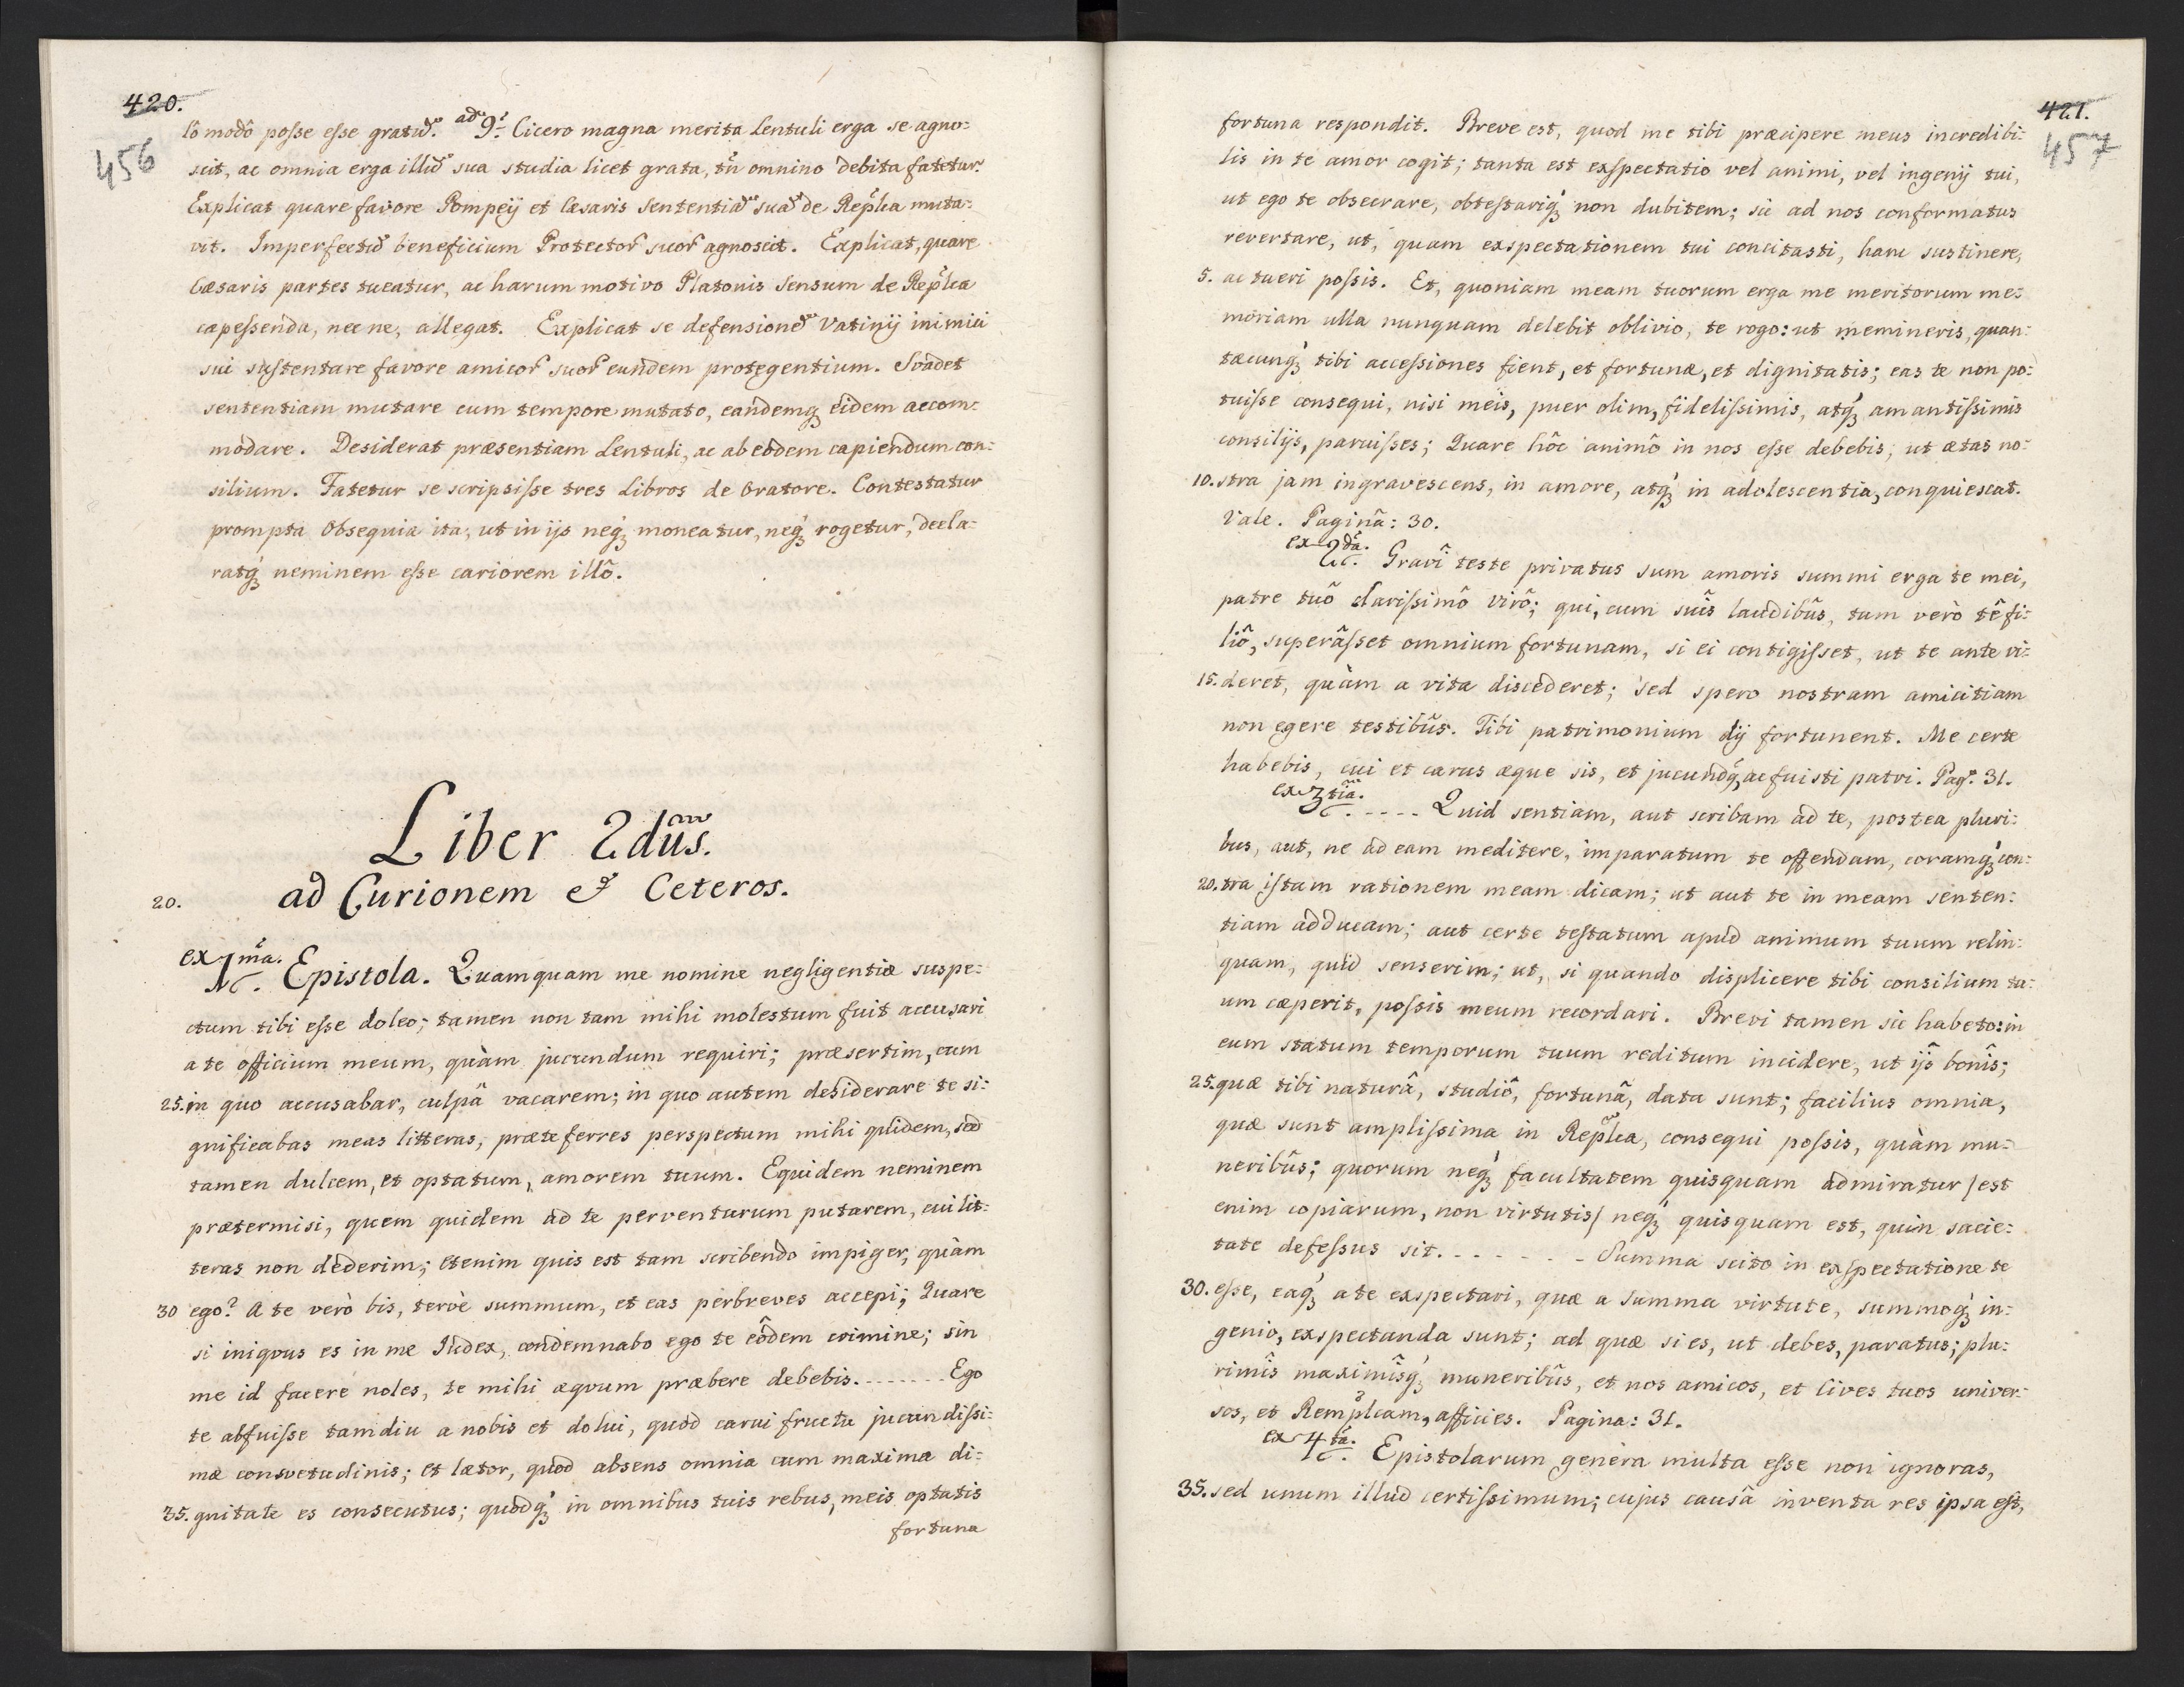 420.
456
lô modô posse esse gratũ. ad 9. Cicero magna merita Lentuli erga se agno=
scit, ac omnia erga illũ sua studia licet grata, tñ omnino debita fatetur.
Explicat quare favore Pompeij et Cæsaris sententiã suã de Repl̃ca muta=
vit. Imperfectũ beneficium Protectoȓ suoȓ agnoscit. Explicat, quare
Cæsaris partes tueatur, ac harum motivo Platonis sensum de Repl̃ca
capessenda, nec ne, allegat. Explicat se defensionẽ Vatinij inimici
sui sustentare favore amicoȓ suoȓ eundem protegentium. Svadet
sententiam mutare cum tempore mutato, eandemq́ꝫ eidem accom=
modare. Desiderat præsentiam Lentuli, ac ab eodem capiendum con=
silium. Fatetur se scripsisse tres Libros de Oratore. Contestatur
prompta Obsequia ita, ut in ijs neq́ꝫ moneatur, neq́ꝫ rogetur, decla=
ratq́ꝫ neminem esse cariorem illô.
Liber 2dũs.
20. ad Curionem & Ceteros.
ex 1mâ. Epistola. Quamquam me nomine negligentiæ suspe=
ctum tibi esse doleo; tamen non tam mihi molestum fuit accusari
a te officium meum, quàm jucundum requiri; præsertim, cum
25. in quo accusabar, culpâ vacarem; in quo autem desiderare te si=
gnificabas meas litteras, præteferres perspectum mihi quidem, sed
tamen dulcem, et optatum, amorem tuum. Equidem neminem
prætermisi, quem quidem ad te perventurum putarem, cui lit=
teras non dederim; etenim quis est tam scribendo impiger, quàm
30 ego? A te verò bis, tervè summum, et eas perbreves accepi; Quare
si iniqvus es in me Judex, condemnabo ego te eôdem crimine; sin
me id facere noles, te mihi æqvum præbere debebis. - - - - - - - Ego
te abfuisse tamdiu a nobis et dolui, quod carui fructu jucundissi=
mæ consvetudinis; et lætor, quod absens omnia cum maxima di=
35. gnitate es consecutus; quodq́ꝫ in omnibus tuis rebus, meis optatis
fortuna
421.
457
fortuna respondit. Breve est, quod me tibi præcipere meus incredibi=
lis in te amor cogit; tanta est exspectatio vel animi, vel ingenij tui,
ut ego te obsecrare, obtestariq́ꝫ non dubitem; sic ad nos conformatus
revertare, ut, quam exspectationem tui concitasti, hanc sustinere,
5. ac tueri possis. Et, quoniam meam tuorum erga me meritorum me=
moriam ulla nunquam delebit oblivio, te rogo: ut memineris, quan=
tæcunq́ꝫ tibi accessiones fient, et fortunæ, et dignitatis; eas te non po=
tuisse consequi, nisi meis, puer olim, fidelissimis, atq́ꝫ amantissimis
consilijs, paruisses; Quare hôc animô in nos esse debebis, ut ætas no=
10. stra jam ingravescens, in amore, atq́ꝫ in adolescentia, conquiescat.
Vale. Paginâ: 30.
ex 2dâ. Gravî teste privatus sum amoris summi erga te mei,
patre tuô clarissimô virô; qui, cum suîs laudibûs, tum verò tê fi=
liô, superâsset omnium fortunam, si ei contigisset, ut te ante vi=
15. deret, quàm a vita discederet; sed spero nostram amicitiam
non egere testibûs. Tibi patrimonium dij fortunent. Me certe
habebis, cui et carus æque sis, et jucundq́, ac fuisti patri. Pag. 31.
ex 3tiâ. - - - - Quid sentiam, aut scribam ad te, postea pluri=
bus, aut, ne ad eam meditere, imparatum te offendam, coramq́ꝫ con=
20. tra istam rationem meam dicam; ut aut te in meam senten=
tiam adducam; aut certe testatum apud animum tuum relin=
quam, quid senserim; ut, si quando displicere tibi consilium tu=
um cæperit, possis meum recordari. Brevi tamen sic habeto: in
eum statum temporum tuum reditum incidere, ut ijs bonîs;
25. quæ tibi naturâ, studiô, fortunâ, data sunt; facilius omnia,
quæ sunt amplissima in Repl̃ca, consequi possis, quàm mu=
neribûs; quorum neq́ꝫ facultatem quisquam admiratur /est
enim copiarum, non virtutis/ neq́ꝫ quisquam est, quin sacie=
tate defessus sit. - - - - - - - Summa scito in exspectatione te
30. esse, eaq́ꝫ a te exspectari, quæ a summa virtute, summoq́ꝫ in=
genio, exspectanda sunt; ad quæ si es, ut debes, paratus; plu=
rimîs maximîsq́ꝫ muneribûs, et nos amicos, et Cives tuos univer=
sos, et Rempl̃cam, afficies. Pagina: 31.
ex 4tâ. Epistolarum genera multa esse non ignoras,
35. sed unum illud certissimum; cujus causâ inventa res ipsa est,